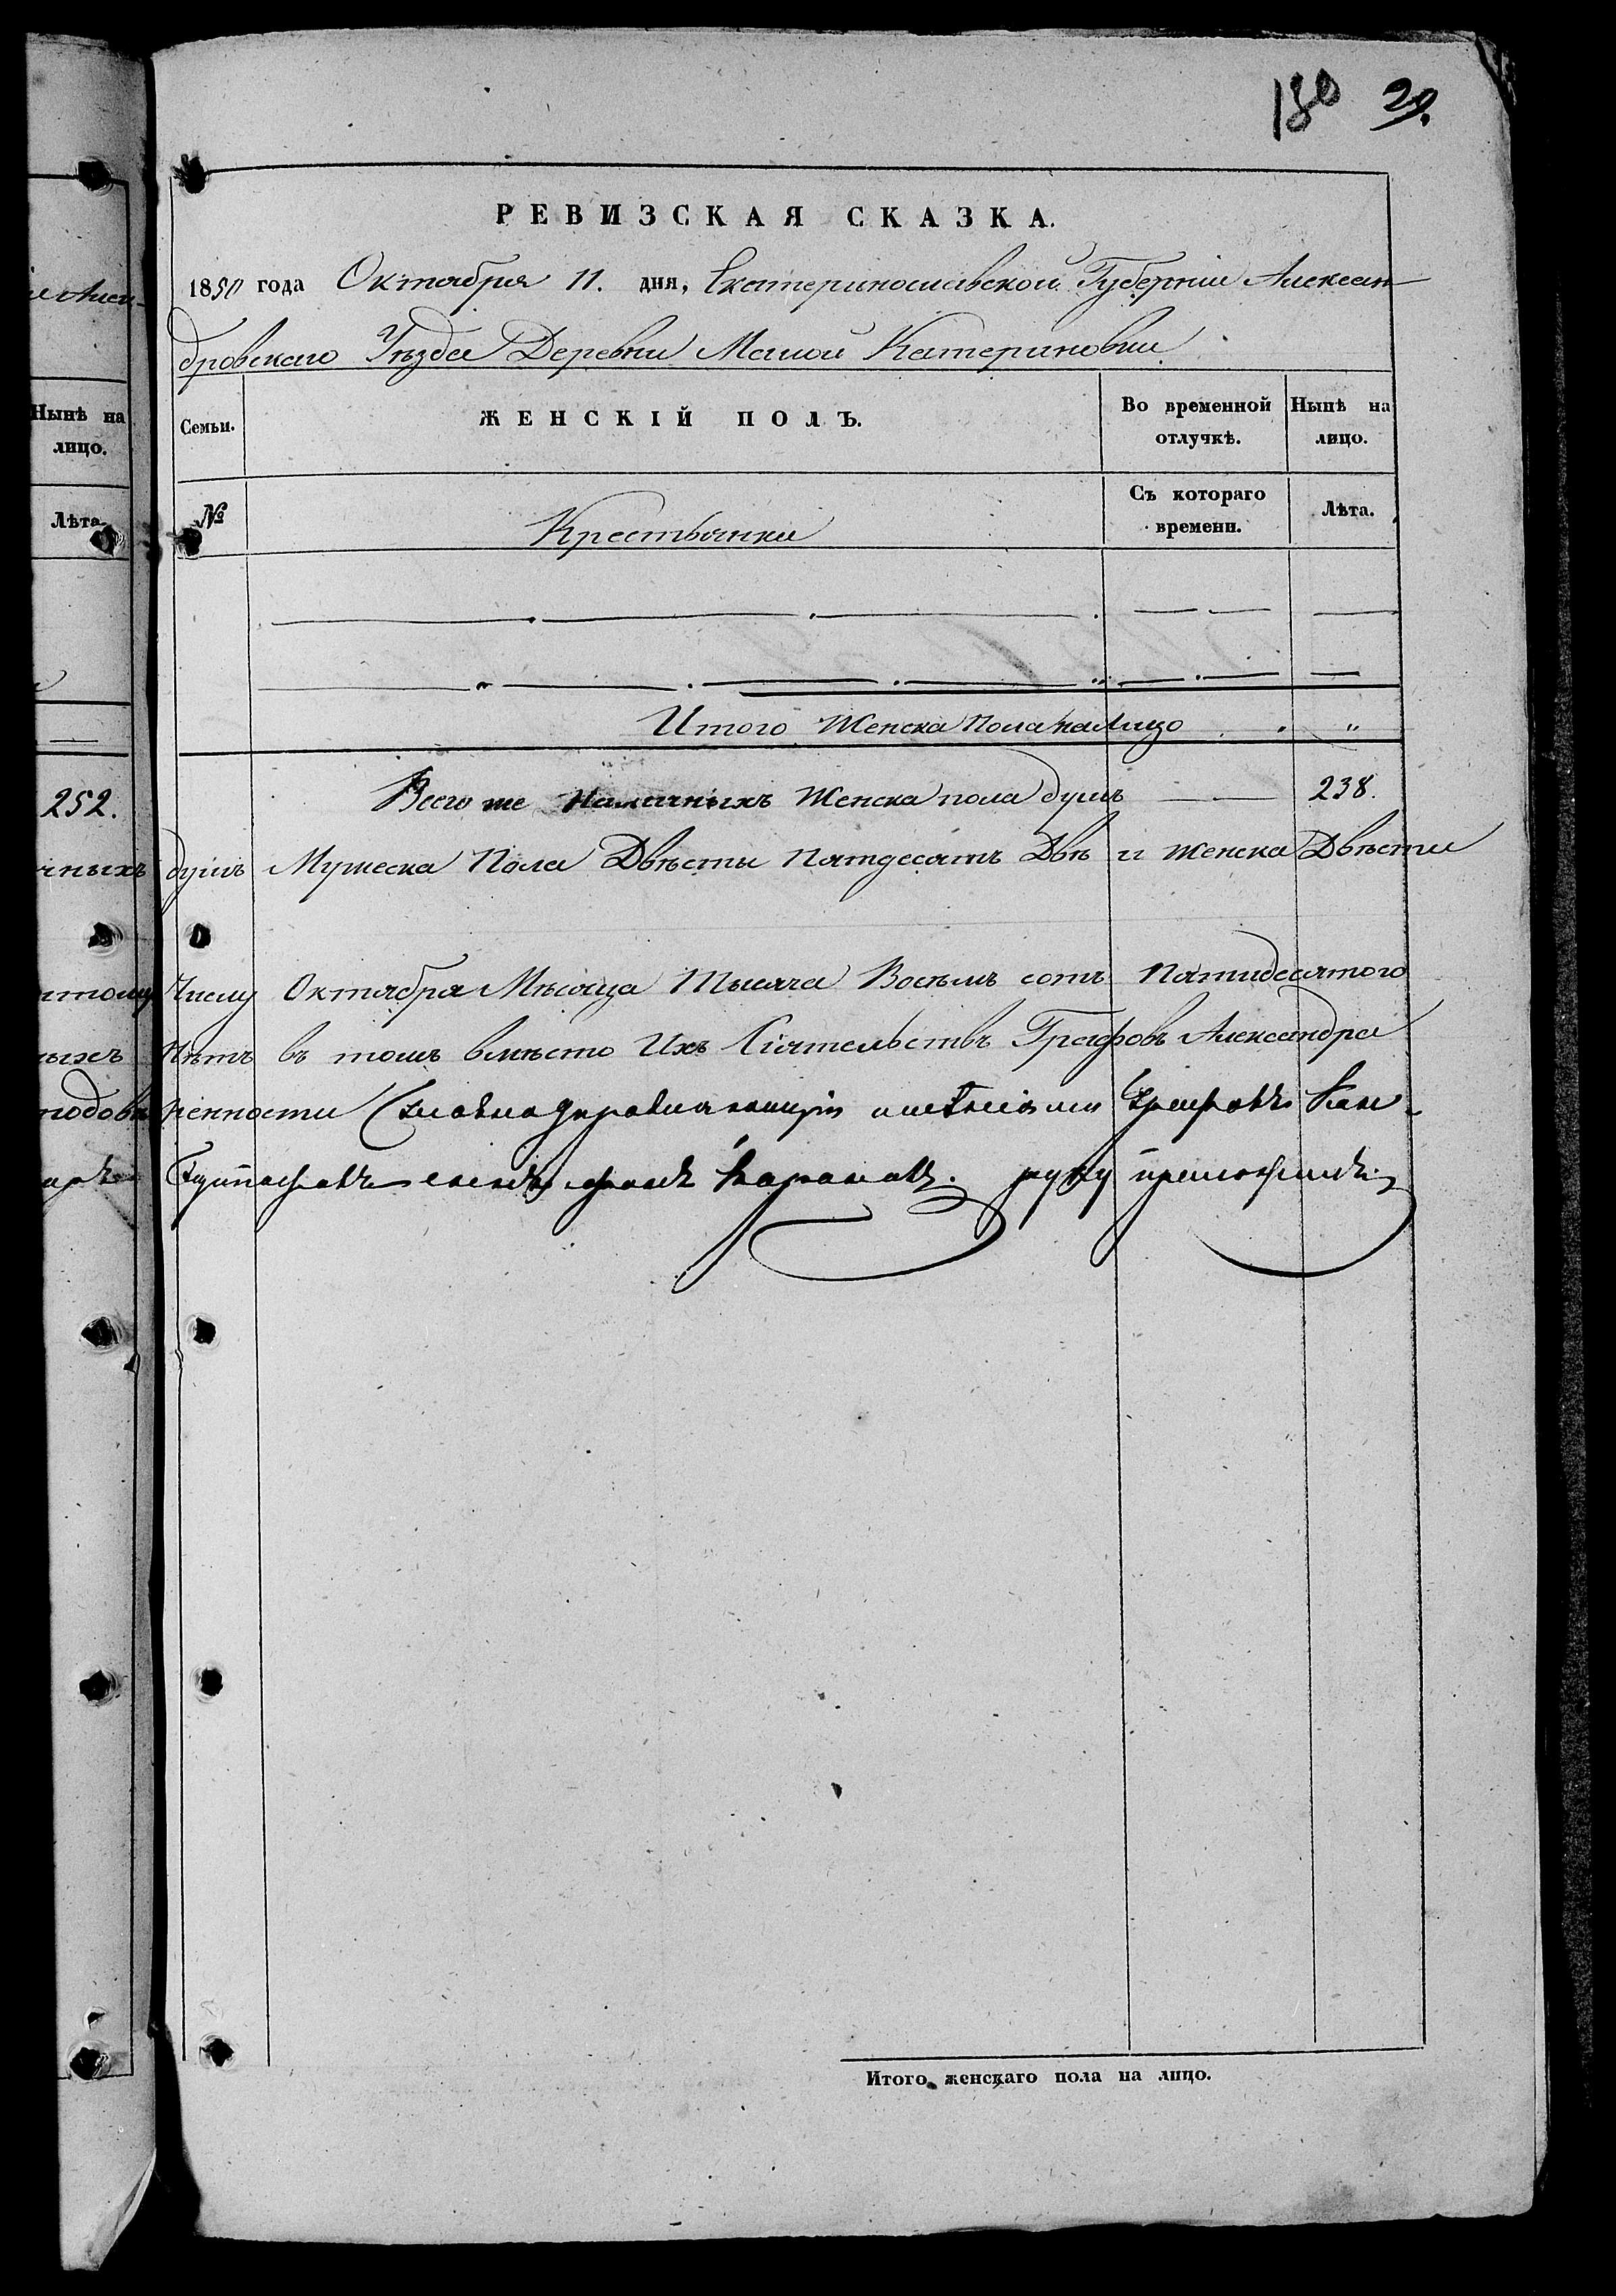 180 29.
РЕВИЗСКАЯ СКАЗКА.
1850 года Октября 11. дня, Екатеринославской Губерніи Алексан-
дровскаго Уѣзда Деревни Малой Катериновки
Нынѣ на лицо.
Семьи.
ЖЕНСКІЙ ПОЛЪ.
Во временной отлучкѣ.
Нынѣ на лицо.
Лѣта.
№
Крестьянки
Съ котораго времени.
Лѣта.
Итого Женска Пола на Лицо „
Всего же Наличныхъ Женска пола душъ 238.
252.
душъ Мужеска Пола Двѣсты Пятдесятъ Двѣ и Женска Двѣсти
Числу Октября Мѣсяца Тысяча Восѣмъ сотъ Пятидесятого
въ томъ вмѣсто Ихъ Сіятельствъ Графовъ Александра
ренности Главноуправляющій имѣніями Графовъ
руку приложилъ
Итого женскаго пола на лицо.